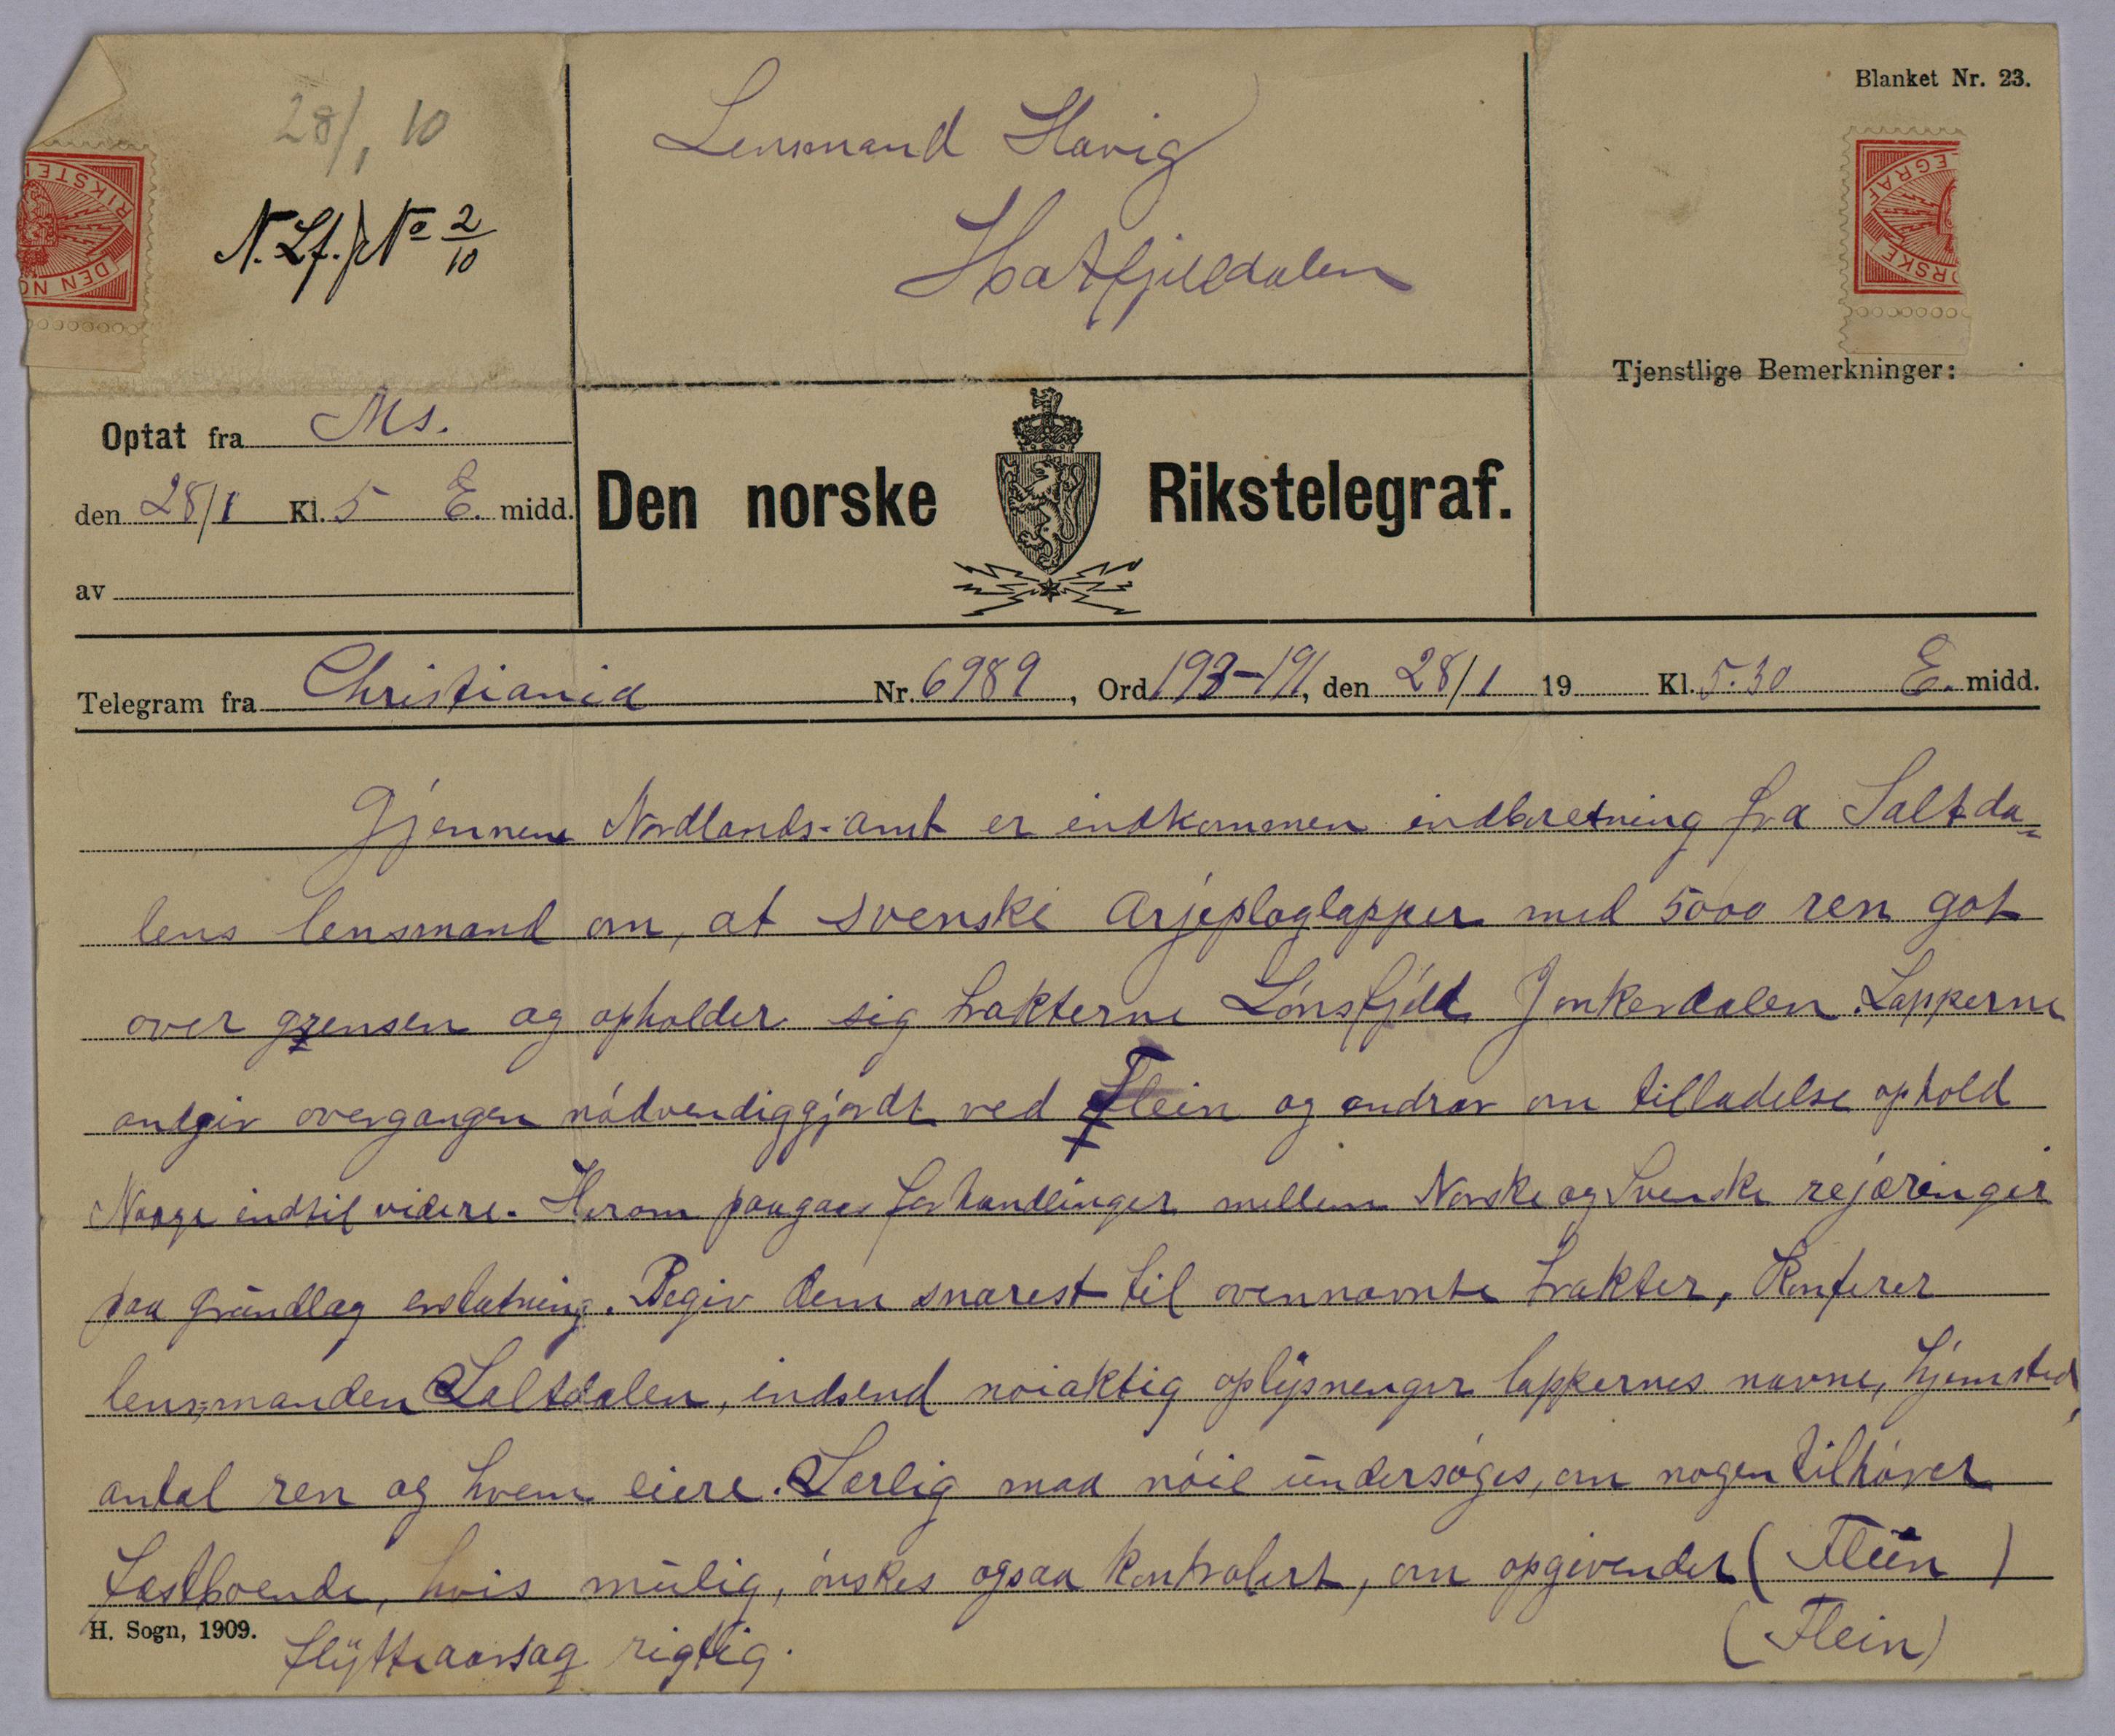 28/1 10
N. Lf. J No 2/10
Lensmand Havig
Hatfjelldalen
Blanket Nr. 23.
Tjenstlige Bemerkninger:
Optat fra Ms.
den 28/1 Kl. 5 E. midd.
av
Den norske Rikstelegraf.
Telegram fra Christiania Nr. 6989, Ord 193-191, den 28/1 19 Kl. 5.30 E. midd.
Gjennem Nordlands-amt er indkommen indberetning fra Saltda=
lens lensmand om, at svenske Arjeploglapper med 5000 ren gåt
over grensen og opholder sig trakterne Lønsfjeld Junkerdalen. Lapperne
andgir overgangen nødvendiggjordt ved Flein og andrar om tilladelse ophold
Norge indtil videre. Herom paagaar forhandlinger mellem Norske og Svenske rejæringer
paa grundlag erstatning. Begiv dem snarest til ovennævnte trakter, Konferer
lensmanden Saltdalen, indsend nøiaktig oplysninger lappernes navne, hjemsted,
antal ren og hvem eiere. Særlig maa nøie undersøges, om nogen tilhører
fastboende, hvis mulig, ønskes ogsaa kontrolert, om opgivender (Flein)
H. Sogn, 1909.
flytteaarsag rigtig.
(Flein)